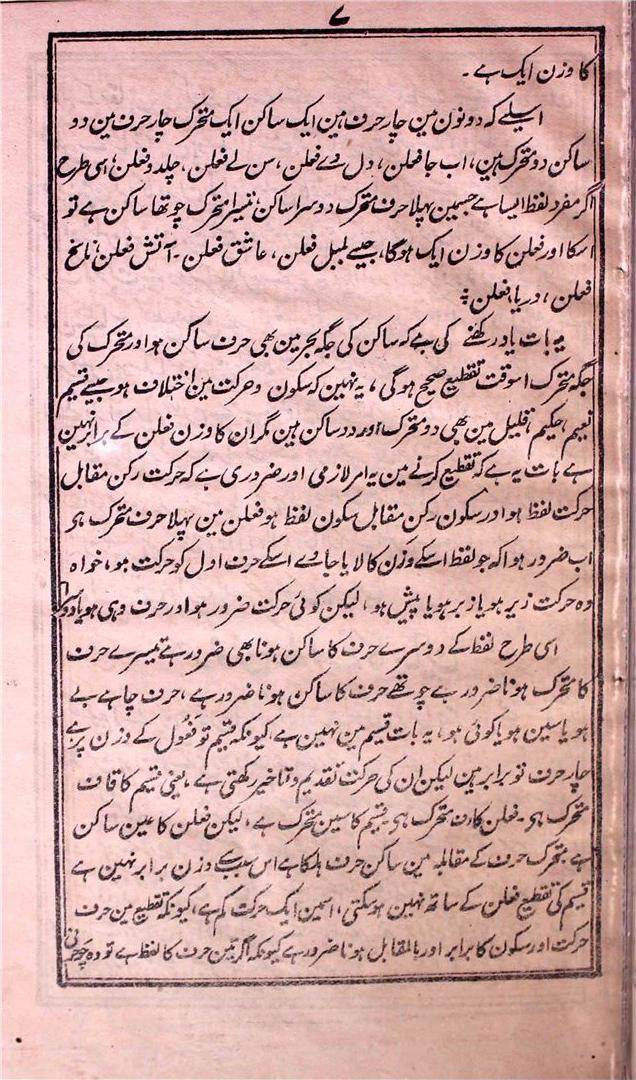 ۷
کا وزن ایک ہے۔
اسیلے کہ دونون مین چار حرف ہین ایک ساکن ایک متحرک چار حرف مین دو
ساکن دو متحرک ہین، اب جا فعلن، دل دے فعلن، سن لے فعلن، چلدو فعلن؛ اسی طرح
اگر مفرد لفظ ایسا ہے جسمین پہلا حرف متحرک دوسرا ساکن تیسرا متحرک چوتھا ساکن ہے تو
اسکا اور فعلن کا وزن ایک ہوگا، جیسے بلبل فعلن، عاشق فعلن۔ آتش فعلن، ناسخ
فعلن، دریا، فعلن؛
یہ بات یاد رکھنے کی ہے کہ ساکن کی جگہ بحر مین بھی حرف ساکن ہو اور متحرک کی
جگہ متحرک اسوقت تقطیع صحیح ہوگی، یہ نہین کہ سکون و حرکت مین اختلاف ہو جیسے قسیم
نعیم، حکیم، قلیل مین بھی دو متحرک اور دو ساکن ہین مگر ان کا وزن فعلن کے برابر نہین
ہے بات یہ ہے کہ تقطیع کرنے مین یہ امر لازمی اور ضروری ہے کہ حرکت رکن مقابل
حرکت لفظ ہو اور سکون رکن مقابل سکون لفظ ہو فعلن مین پہلا حرف متحرک ہی
اب ضرور ہوا کہ جو لفظ اسکے وزن کا لایا جاوے اسکے حرف اول کو حرکت ہو، خواہ
وہ حرکت زیر ہو یا زبر ہو یا پیش ہو، لیکن کوئی حرکت ضرور ہو اور حرف وہی ہو یا دوسرا
اسی طرح لفظ کے دوسرے حرف کا ساکن ہونا بھی ضرور ہے تیسرے حرف
کا متحرک ہونا ضرور ہے چوتھے حرف کا ساکن ہونا ضرور ہے، حرف چاہے بے
ہو یا سین ہو یا کوئی ہو، یہ بات قسیم مین نہین ہے کیونکہ قسیم تو فعول کے وزن پر ہے
چار حرف تو برابر ہین لیکن ان کی حرکت تقدیم و تاخیر رکھتی ہے، یعنی قسیم کا قاف
متحرک ہی۔ فعلن کا ف متحرک ہی۔ قسیم کا سین متحرک ہے، لیکن فعلن کا عین ساکن
ہے متحرک حرف کے مقابلہ مین ساکن حرف ہلکا ہے اس سبب سے وزن برابر نہین ہے
قسیم کی تقطیع فعلن کے ساتھ نہین ہو سکتی، اسمین ایک حرکت کم ہے، کیونکہ تقطیع مین حرف
حرکت اور سکون کا برابر اور بالمقابل ہونا ضرور ہے کیونکہ اگر تین حرف کا لفظ ہے تو وہ